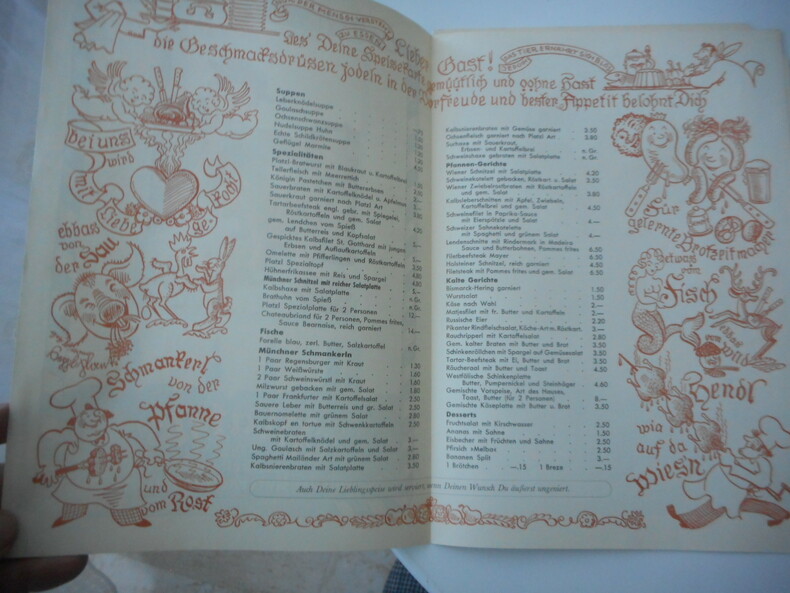 DER MENSCH
ZU ESSEN!
Lieber Gast!
DAS TIER ERNÄHRT SICH BLOSS
Les Deine Speisekarte gemüatlich und oohne Hast
die Geschmacksdrüsen jodeln in der Vorfreude und bester Appetit belohnt Dich
bei uns
wird
mit
Liebe
ebbas
von
der Sau
Schmankerl
von der
Pfanne
und
vom Rost
Suppen
Leberknödelsuppe
Gulaschsuppe
Ochsenschwanzsuppe
Nudelsuppe Huhn
Echte Schildkrötensuppe
Geflügel Marmite
Spezialitäten
Platzl Bratwurst mit Blaukraut u. Kartoffelbrei
Tellerfleisch mit Meerrettich
Königin Pastetchen mit Buttererbsen
Sauerbraten mit Kartoffelknödel u. Apfelmus
Sauerkraut garniert nach Platzl Art
Tartarbeefsteak engl. gebr. mit Spiegelei,
Röstkartoffeln und gem. Salat
gem. Lendchen vom Spieß
auf Butterreis und Kopfsalat
Gespicktes Kalbsfilet St. Gotthard mit jungen
Erbsen und Aufläufkartoffeln
Omelette mit Pfifferlingen und Röstkartoffeln
Platzl Spezialtopf
Hühnerfrikassee mit Reis und Spargel
Münchner Schnitzel mit reicher Salatplatte
Kalbshaxe mit Salatplatte
Brathuhn vom Spieß
Platzl Spezialplatte für 2 Personen 12,—
Chateaubriand für 2 Personen, Pommes frites,
Sauce Bearnaise, reich garniert 14.—
Fische
Forelle blau, zerl. Butter, Salzkartoffel n. Gr.
Münchner Schmankerln
1 Paar Regensburger mit Kraut 1.30
1 Paar Weißwürste 1.60
2 Paar Schweinswürstl mit Kraut 1.60
Milzwurst gebacken mit gem. Salat 1.80
1 Paar Frankfurter mit Kartoffelsalat 2.50
Saures Leber mit Butterreis und gr. Salat 2.50
Bauernomelette mit grünem Salat 2.80
Kalbskopf en tortue mit Schwenkkartoffeln 2.50
Schweinebraten
mit Kartoffelknödel und gem. Salat 3.—
Ung. Goulasch mit Salzkartoffeln und Salat 3.—
Spaghetti Mailänder Art mit grünem Salat 2.80
Kalbsnierenbraten mit Salatplatte 3.50
Kalbsnierenbraten mit Gemüse garniert 3.50
Ochsenfleisch garniert nach Platzl Art 2.80
Surhaxe mit Sauerkraut,
Erbsen- und Kartoffelbrei n. Gr.
Schweinshaxe gebraten mit Salatplatte n. Gr.
Pfannen-Gerichte
Wiener Schnitzel mit Salatplatte 4.20
Schweinskotelett gebacken, Röstkart. u. Salat 3.50
Wiener Zwiebelrostbraten mit Röstkartoffeln
und gem. Salat 3.80
Kalbsleberschnitten mit Apfel, Zwiebeln,
Kartoffelbrei und gem. Salat 4.50
Schweinefilet in Paprika-Sauce
mit Eierspätzle und Salat 4.—
Schweizer Sahnekotelette
mit Spaghetti und grünem Salat 4.—
Lendenschnitte mit Rindermark in Madeira-
Sauce und Butterbohnen, Pommes frites 6.50
Filetbeefsteak Mayer 6.50
Holsteiner Schnitzel, reich garniert 4.50
Filetsteak mit Pommes frites und gem. Salat 6.50
Kalte Gerichte
Bismarck-Hering garniert 1.50
Wurstsalat 1.50
Käse nach Wahl 2.—
Matjesfilet mit fr. Butter und Kartoffeln 2.—
Russische Eier 2.20
Pikanter Rindfleischsalat, Küche-Art m. Röstkart. 2.—
Rauchripperl mit Kartoffelsalat 2.80
Gem. kalter Braten mit Butter und Brot 3.50
Schinkenröllchen mit Spargel auf Gemüsesalat 3.50
Tartar-Beefsteak mit Ei, Butter und Brot 3.50
Räucheraal mit Butter und Toast 4.50
Westfälische Schinkenplatte
Butter, Pumpernickel und Steinhäger 4.60
Gemischte Vorspeise, Art des Hauses,
Toast, Butter (für 2 Personen) 8.—
Gemischte Käseplatte mit Butter u. Brot 3.50
Desserts
Fruchtsalat mit Kirschwasser 2.50
Ananas mit Sahne 1.50
Eisbecher mit Früchten und Sahne 3.50
Pfirsich »Melba« 2.50
Bananen Split 3.—
1 Brötchen —.15 1 Breze —.15
Für
gelernte Brotzeitmacher
Etwas
vom
Fisch
vom
Wild
Hendl
wia
auf da
Wiesn
Auch Deine Lieblingsspeise wird serviert, wenn Deinen Wunsch Du äußerst ungeniert.